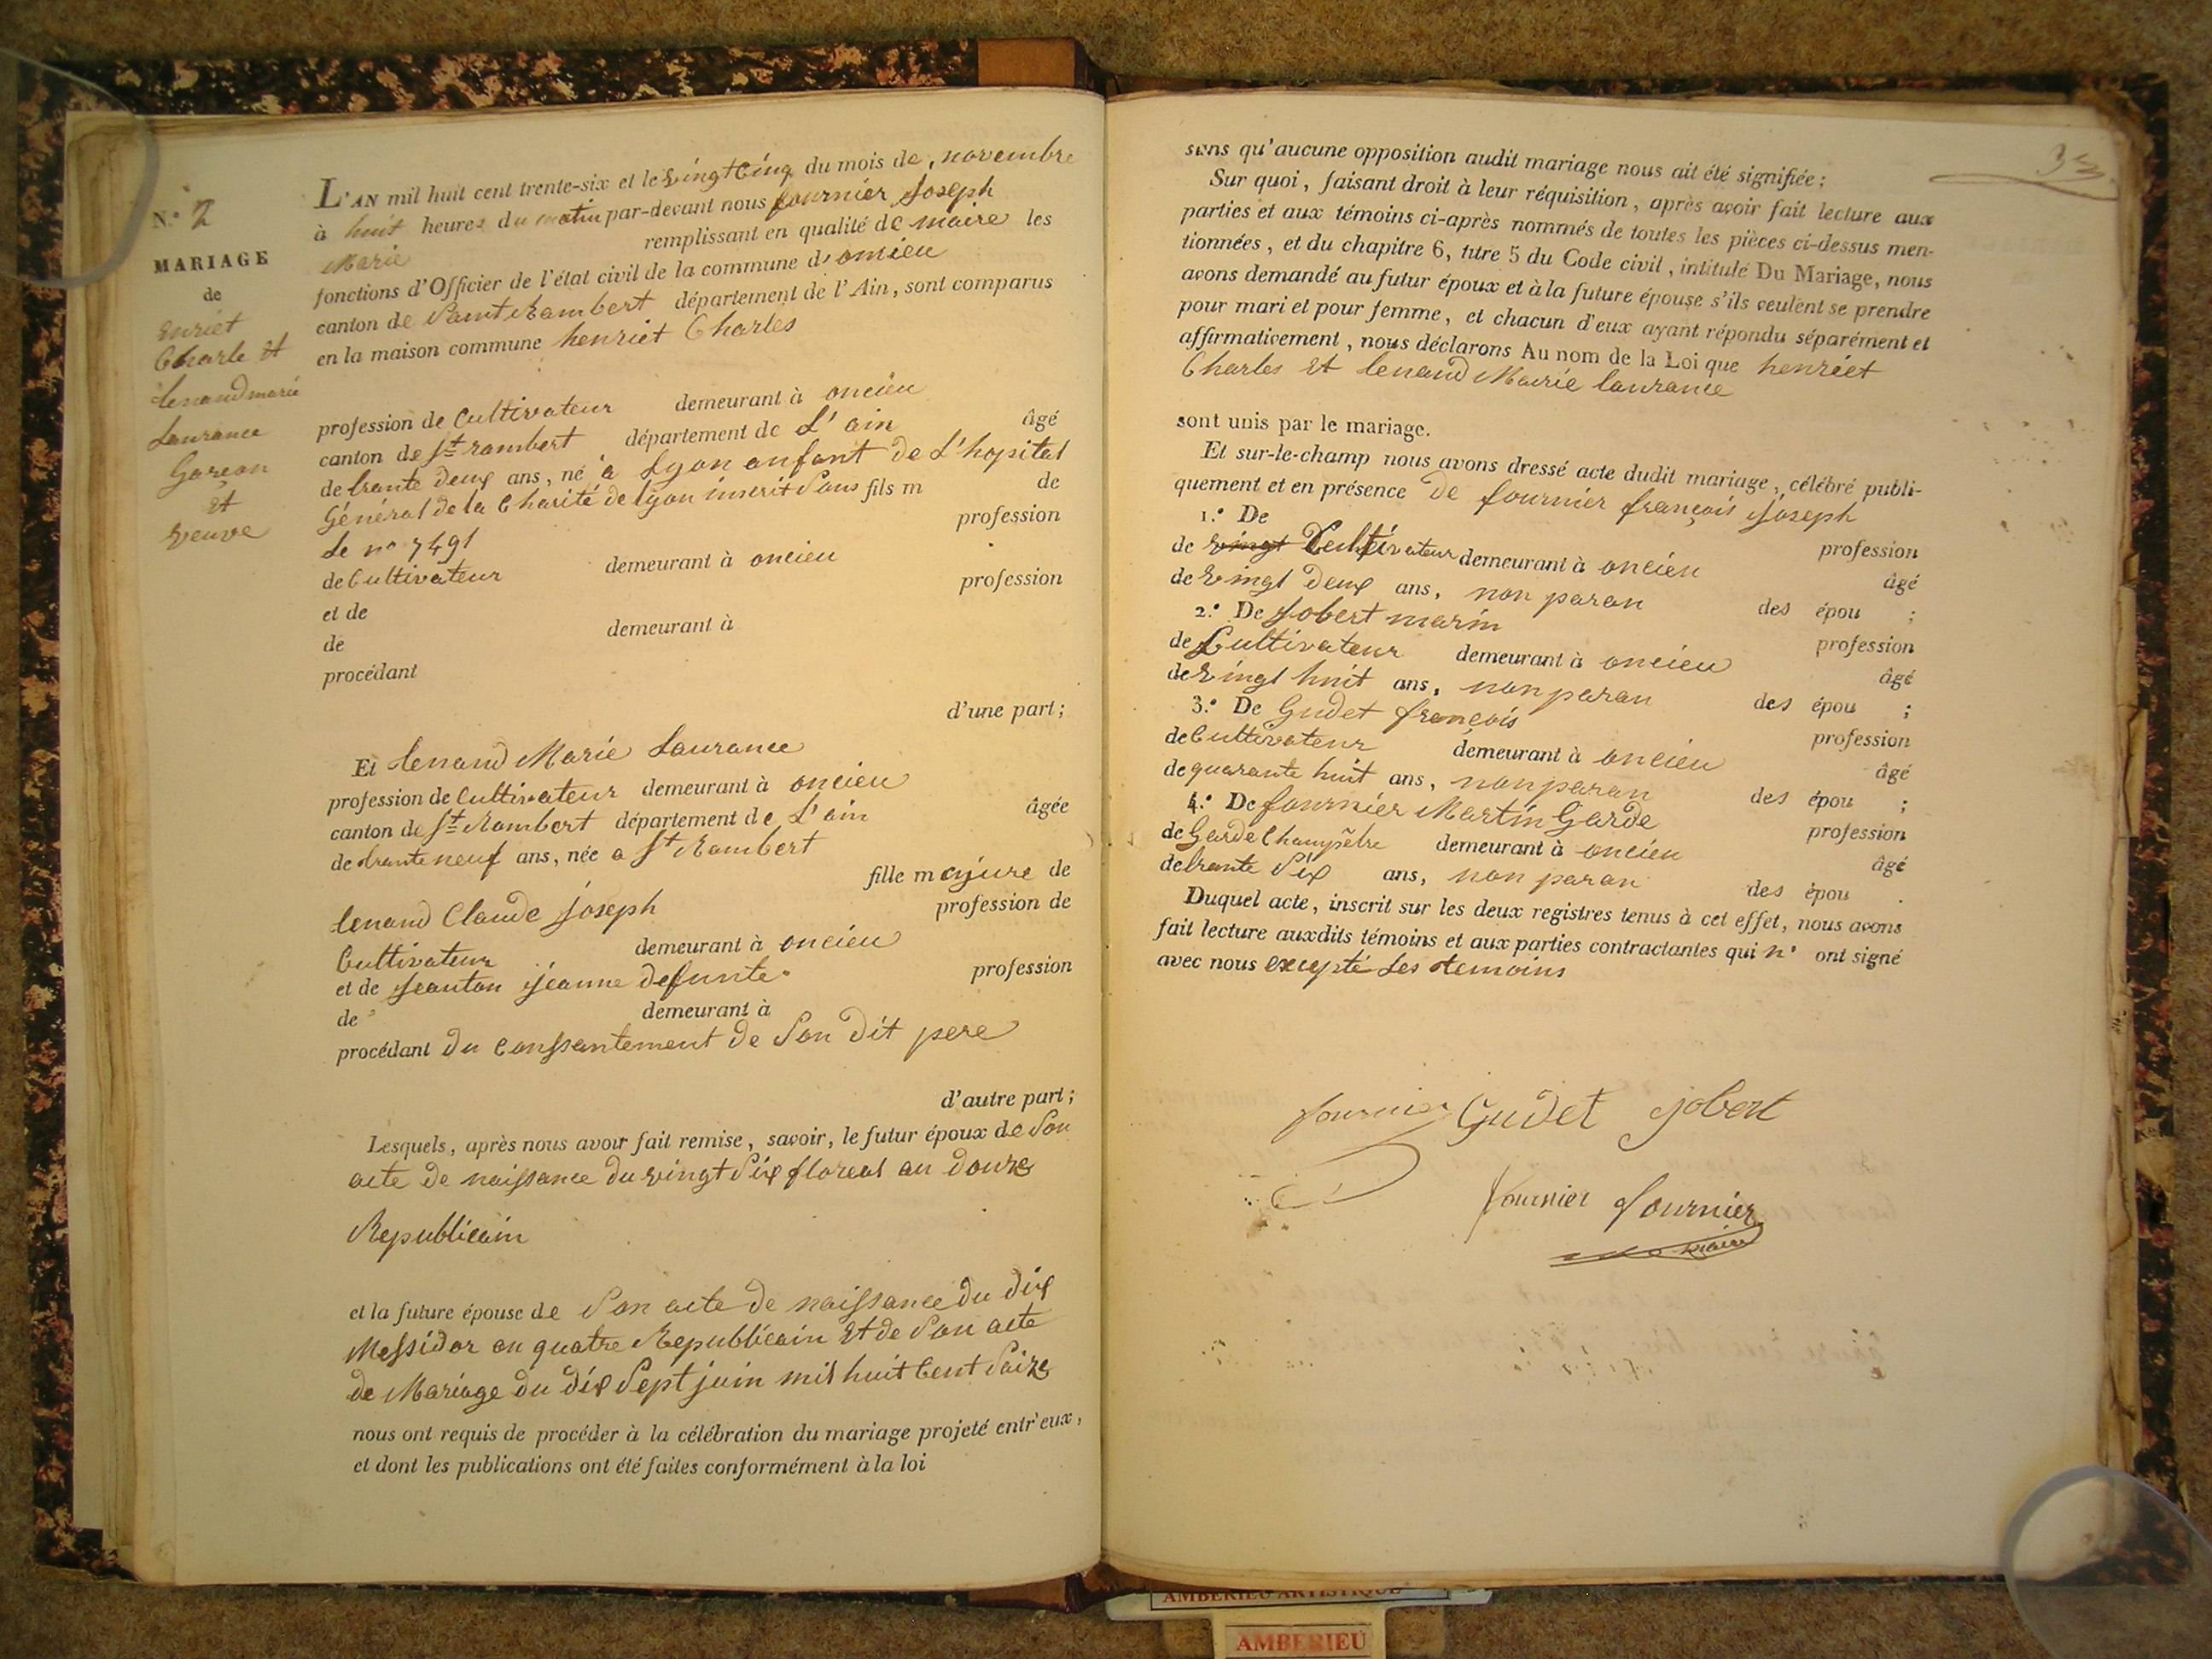 N.° 2
MARIAGE
de
enriet
Charle et
lenand marie
Laurance
Garçon
et
veuve
L'AN mil huit cent trente-six et le vingt Cinq du mois de, novembre
à huit heures du matin par-devant nous fournier Joseph
Marie remplissant en qualité de maire les
fonctions d'Officier de l'état civil de la commune d'oncieu
canton de Saint Rambert département de l'Ain, sont comparus
en la maison commune henriet Charles
profession de Cultivateur demeurant à oncieu
canton de St rambert département de L'ain âgé
de trante deux ans, né a Lyon anfant de L'hopital
Général de la Charité de lyon inscrit Sous fils m de
Le no 7491 profession
de Cultivateur demeurant à oncieu
et de profession
de demeurant à
procédant
d'une part;
Et lenand Marie Laurance
profession de Cultivateur demeurant à oncieu
canton de St Rambert département de L'ain âgée
de trante neuf ans, née a St Rambert
fille m ajure de
lenand Claude Joseph profession de
Cultivateur demeurant à oncieu
et de Jeanton jeanne defunte profession
de demeurant à
procédant du Conssantement de Son dit pere
d'autre part;
Lesquels, après nous avoir fait remise, savoir, le futur époux de Son
acte de naissance du vingt Six floreal an douze
Republicain
et la future épouse de Son acte de naissance du dix
Messidor an quatre Republicain et de Son acte
de Mariage du dix Sept juin mil huit Cent Saize
nous ont requis de procéder à la célébration du mariage projeté entr'eux,
et dont les publications ont été faites conformément à la loi
sans qu'aucune opposition audit mariage nous ait été signifiée;
Sur quoi, faisant droit à leur réquisition, après avoir fait lecture aux
parties et aux témoins ci-après nommés de toutes les pièces ci-dessus men-
tionnées, et du chapitre 6, titre 5 du Code civil, intitulé Du Mariage, nous
avons demandé au futur époux et à la future épouse s'ils veulent se prendre
pour mari et pour femme, et chacun d'eux ayant répondu séparément et
affirmativement, nous déclarons Au nom de la Loi que henriet
Charles et lenand Marie laurance
sont unis par le mariage.
Et sur-le-champ nous avons dressé acte dudit mariage, célébré publi-
quement et en présence de fournier françois joseph
1.° De profession
de vingt Cultivateur demeurant à oncieu âgé
de vingt deux ans, non paran des épou ;
2.° De Jobert marin profession
de Cultivateur demeurant à oncieu âgé
de vingt huit ans, non paran des épou ;
3.° De Gudet françois profession
de Cultivateur demeurant à oncieu âgé
de quarante huit ans, non paran des épou ;
4.° De fournier Martin Garde profession
de Garde Champêtre demeurant à oncieu âgé
de trante Six ans, non paran des épou .
Duquel acte, inscrit sur les deux registres tenus à cet effet, nous avons
fait lecture auxdits témoins et aux parties contractantes qui n' ont signé
avec nous excepté Les temoins
fournier Gudet jobert
fournier fournier
maire
AMBERIEU ARTISTIQUE
AMBERIEU